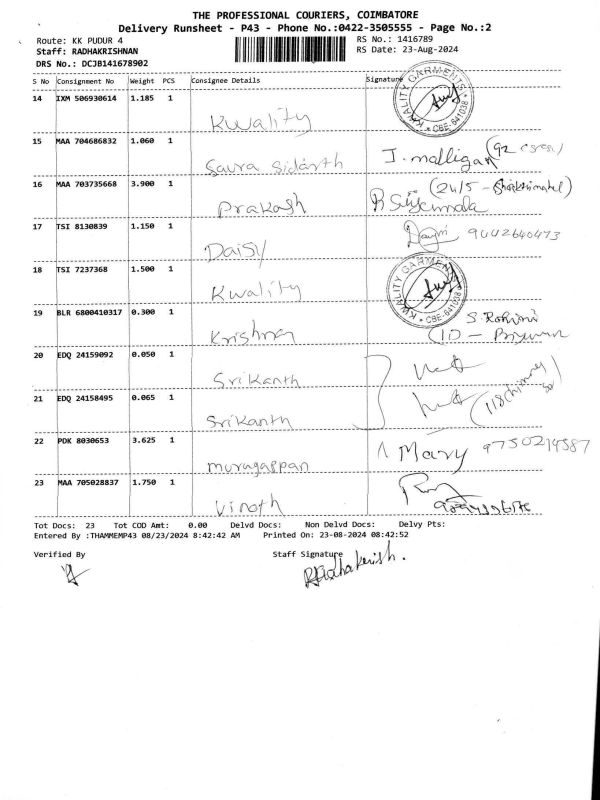 THE PROFESSIONAL COURIERS, COIMBATORE
Delivery Runsheet - P43 - Phone No.:0422-3505555 - Page No.:2
Route: KK PUDUR 4 RS No.: 1416789
Staff: RADHAKRISHNAN RS Date: 23-Aug-2024
DRS No.: DCJB141678902
S No Consignment No Weight PCS Consignee Details Signature
14 IXM 506930614 1.185 1 Kwality KWALITY GARMENTS * CBE-641038 *
15 MAA 704686832 1.060 1 Saura Sidarth J. malligan
16 MAA 703735668 3.900 1 Prakash
17 TSI 8130839 1.150 1 Daisy 9442640473
18 TSI 7237368 1.500 1 Kwality KWALITY GARMENTS * CBE-641038 *
19 BLR 6800410317 0.300 1 Krishnan S. Rohini
20 EDQ 24159092 0.050 1 Srikanth
21 EDQ 24158495 0.065 1 Srikanth
22 PDK 8030653 3.625 1 murugappan Mary 9750214587
23 MAA 705028837 1.750 1 Vinoth
Tot Docs: 23 Tot COD Amt: 0.00 Delvd Docs: Non Delvd Docs: Delvy Pts:
Entered By :THAMMEMP43 08/23/2024 8:42:42 AM Printed On: 23-08-2024 08:42:52
Verified By Staff Signature